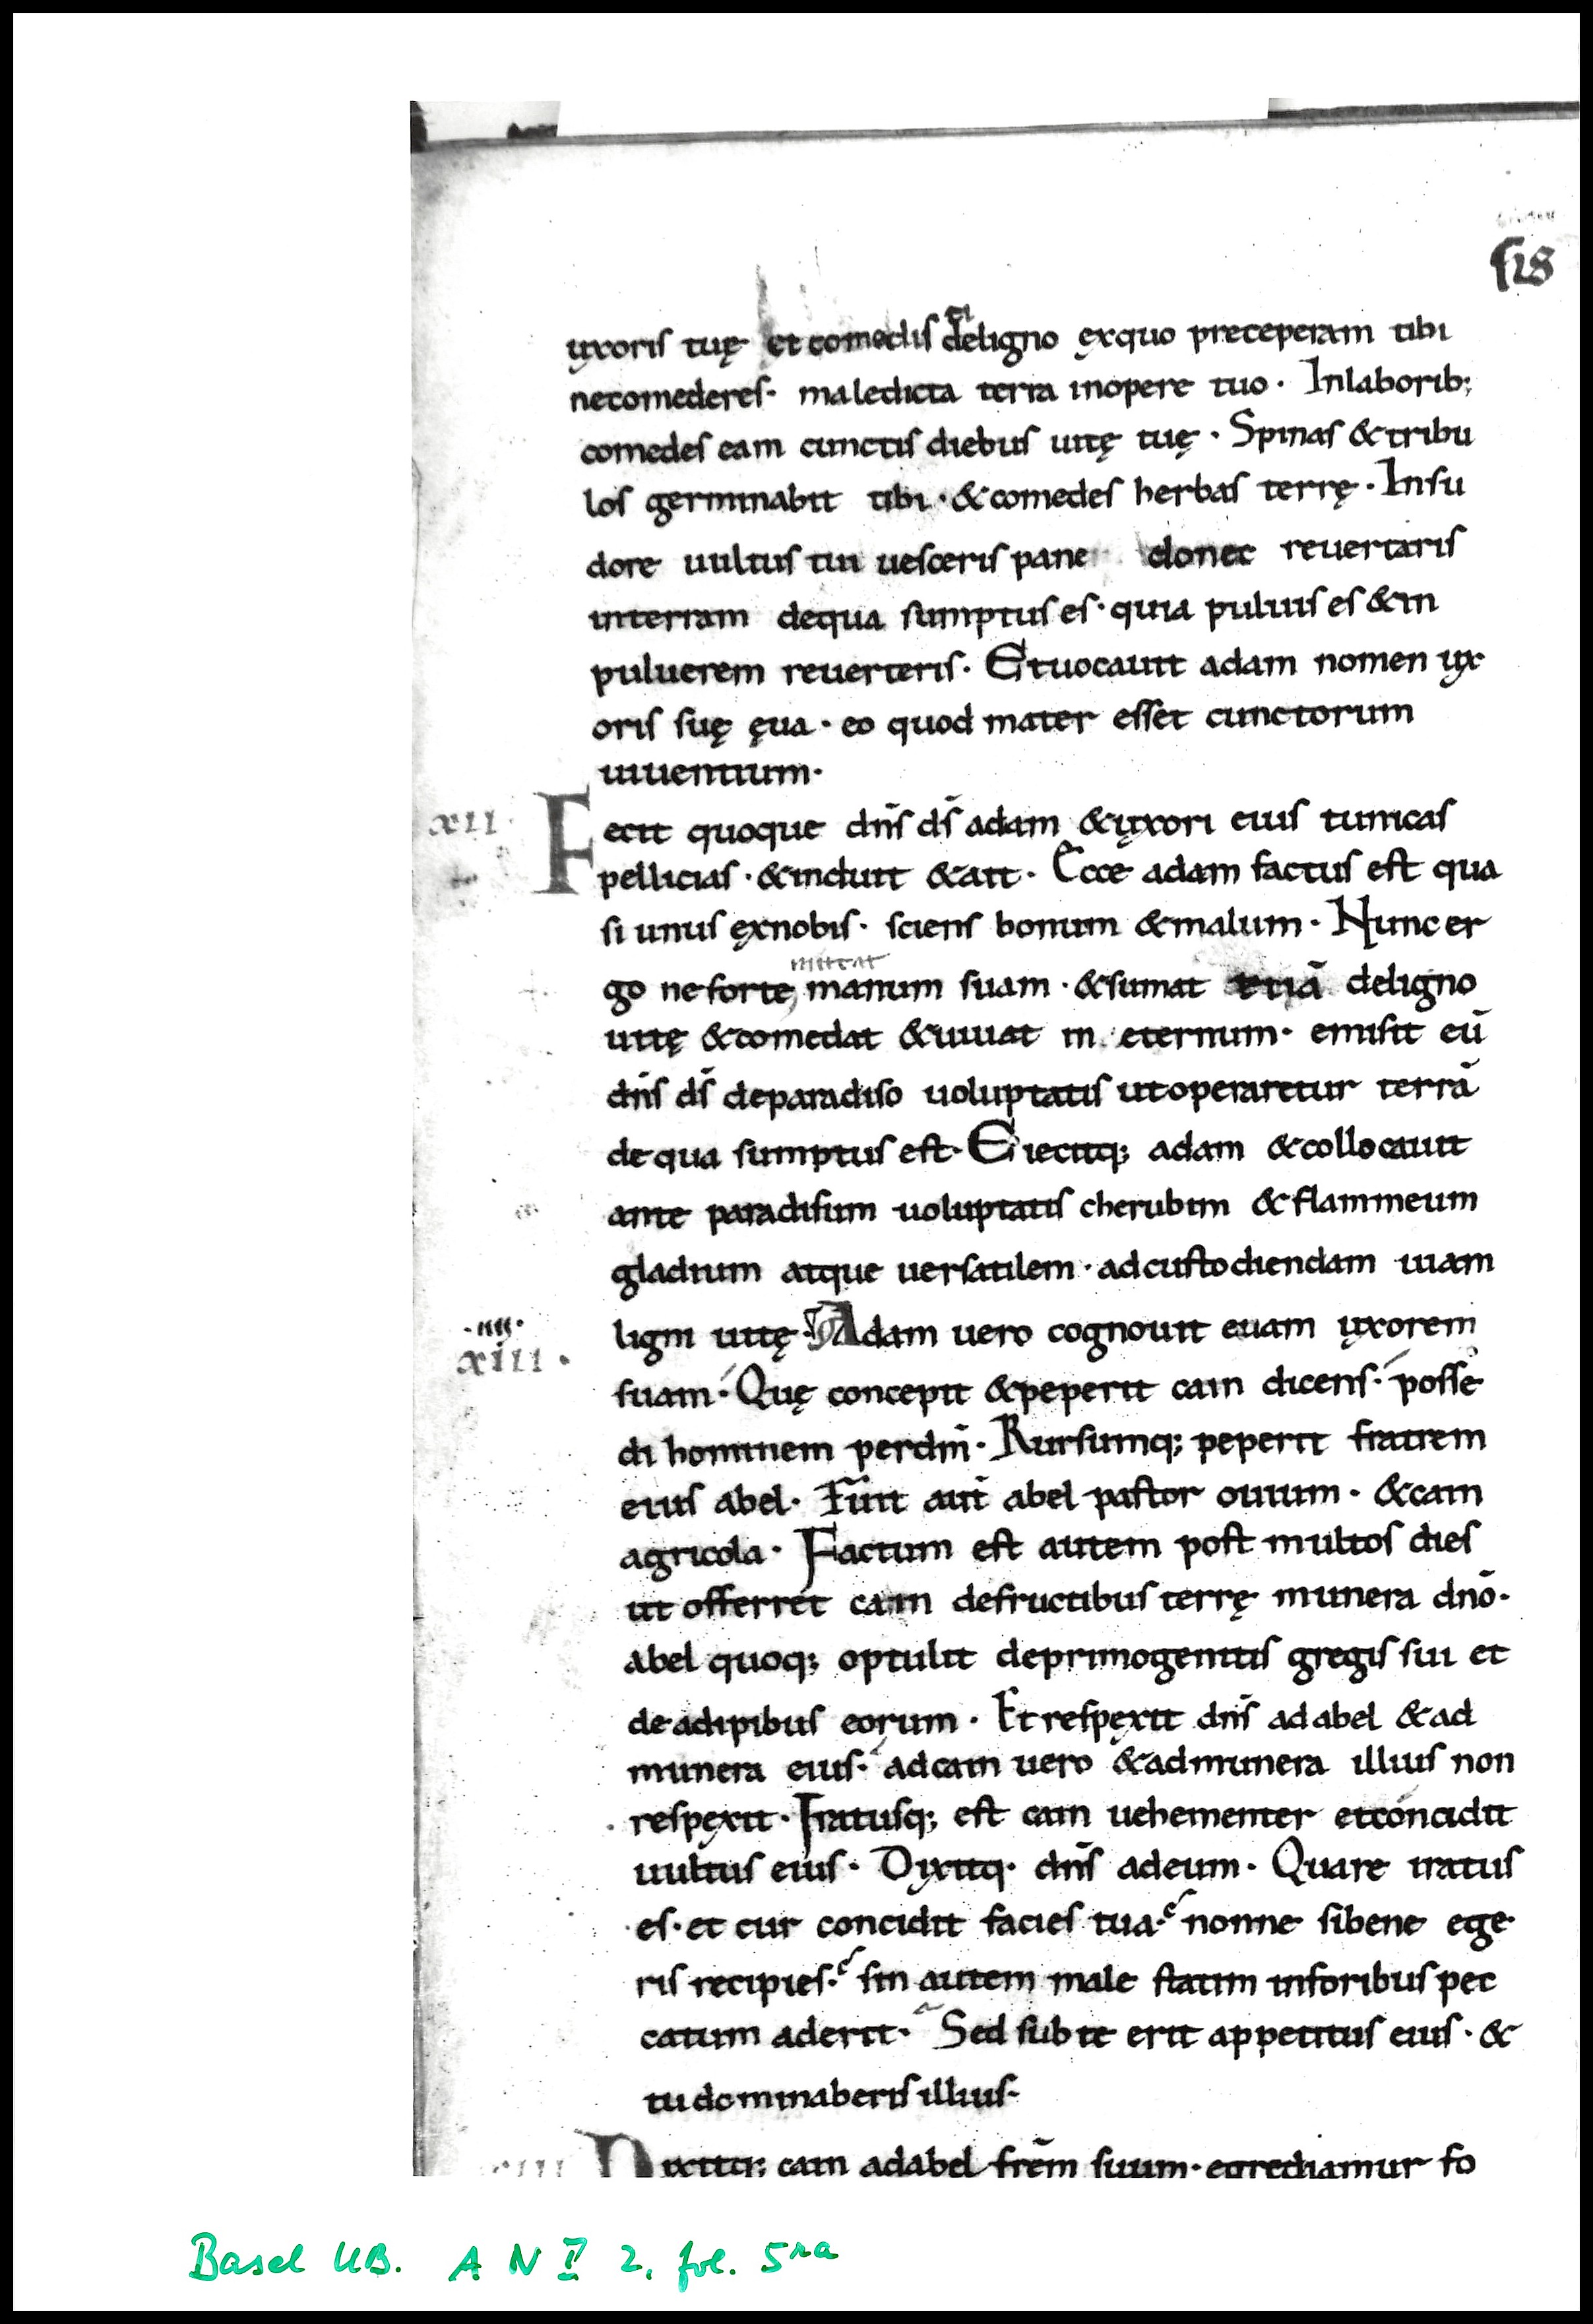 sis
uxoris tuę et comedis deligno exquo preceperam tibi
necomederes· maledicta terra inopere tuo· Inlaborib;
comedes eam cunctis diebus uitę tuę· Spinas &tribu
los germinabit tibi· &comedes herbas terrę· Insu
dore uultus tui uesceris pane donec reuertaris
interram dequa sumptus es· quia puluis es &in
puluerem reuerteris· Etuocauit adam nomen ux
oris suę ęua· eo quod mater esset cunctorum
uiuentium·
xii· Fecit quoque dn̄s ds̄ adam &uxori eius tunicas
pellicias· &induit &ait· Ecce adam factus est qua
si unus exnobis· sciens bonum &malum· Nunc er
mittat
go ne forte, manum suam· &sumat etiā deligno
uitę &comedat &uiuat in eternum· emisit eū
dn̄s ds̄ deparadiso uoluptatis utoperaretur terrā
de qua sumptus est· Eiecitq; adam &collocauit
ante paradisum uoluptatis cherubim &flammeum
gladium atque uersatilem· adcustodiendam uiam
·iiii· ligni uitę· Adam uero cognouit euam uxorem
xiii·
suam· Quę concepit &peperit cain dicens· posse
di hominem perdm̄· Rursumq; peperit fratrem
eius abel· Fuit aut̄ abel pastor ouium· &cain
agricola· Factum est autem post multos dies
ut offerret cain defructibus terrę munera dnō·
abel quoq; optulit deprimogenitis gregis sui et
de adipibus eorum· Et respexit dn̄s ad abel &ad
munera eius· adcain uero &admunera illius non
respexit· Iratusq; est cain uehementer etconcidit
uultus eius· Dixitq· dn̄s adeum· Quare iratus
es· et cur concidit facies tua· nonne sibene ege
ris recipies· sin autem male statim inforibus pec
catum aderit· Sed sub te erit appetitus eius· &
tu dominaberis illius·
Dixitq; cain adabel frēm suum· egrediamur fo
Basel UB. A N I 2, fol. 5ra